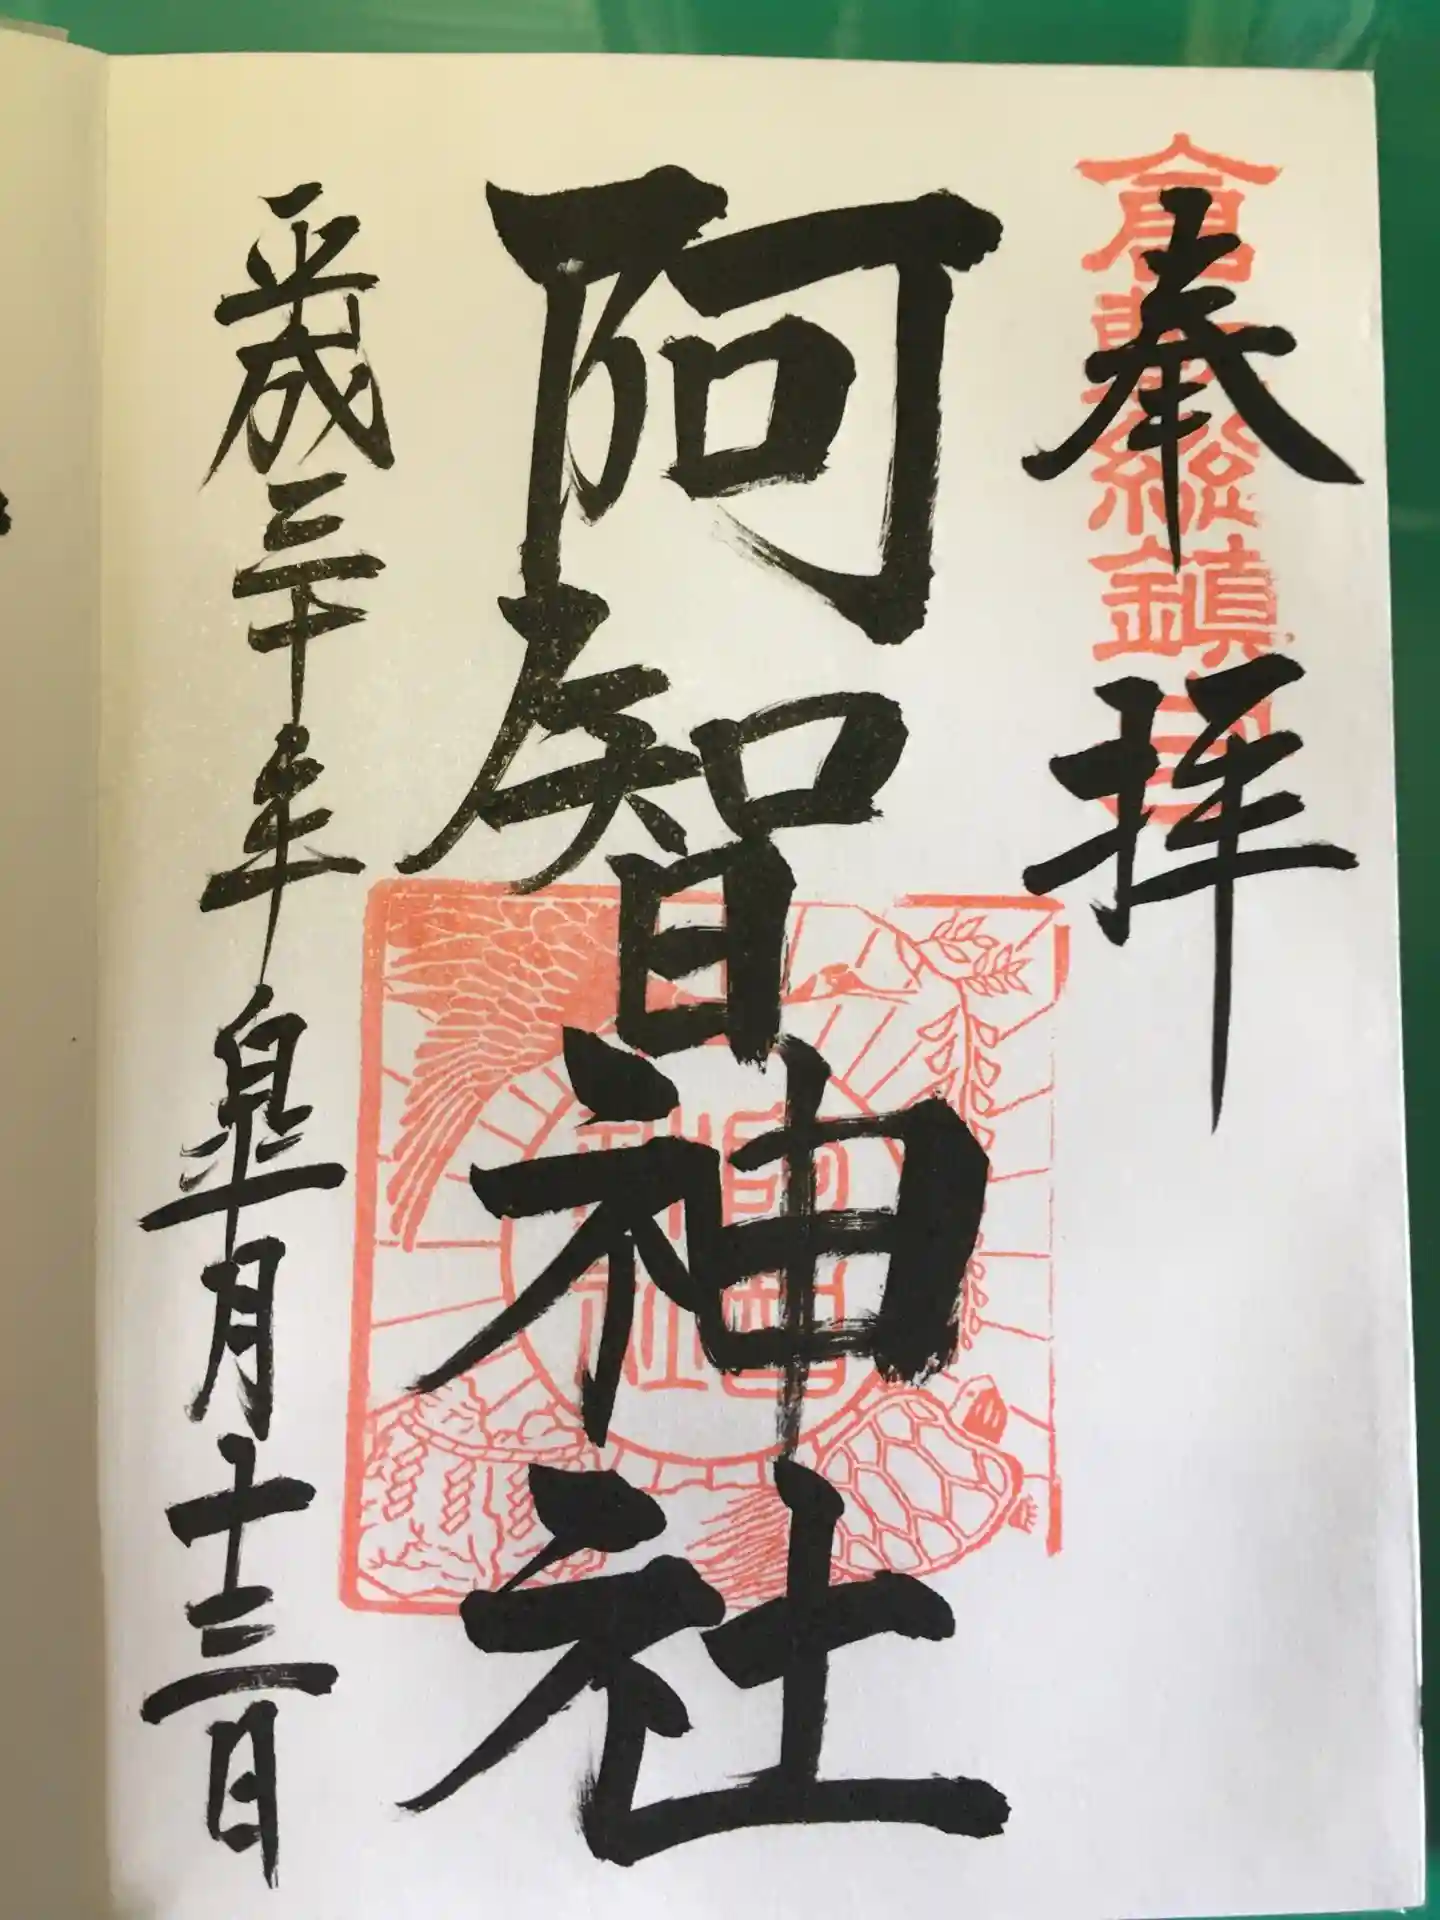 奉拝
倉敷総鎮守
阿智神社
阿智神社
平成三十年皐月十三日